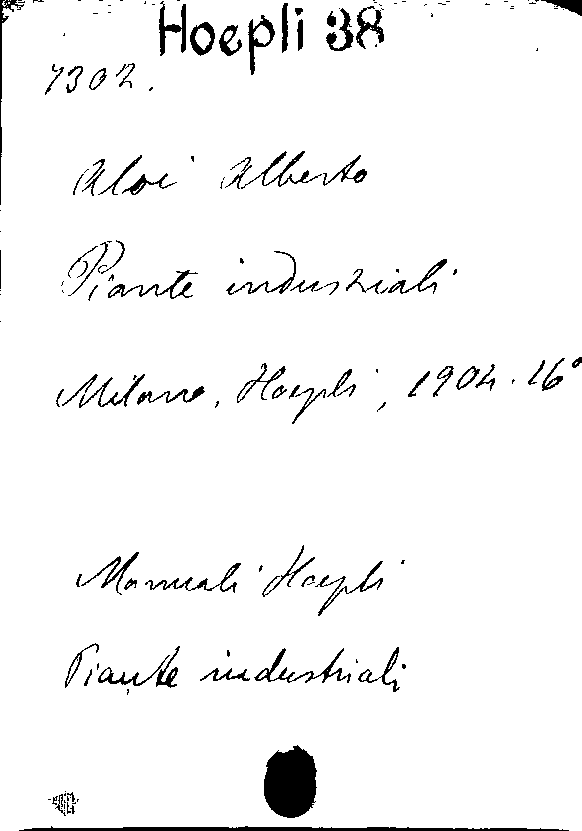 Hoepli 38
7302.
Aloi Alberto
Piante industriali
Milano, Hoepli, 1904. 16°
Manuali Hoepli
Piante industriali